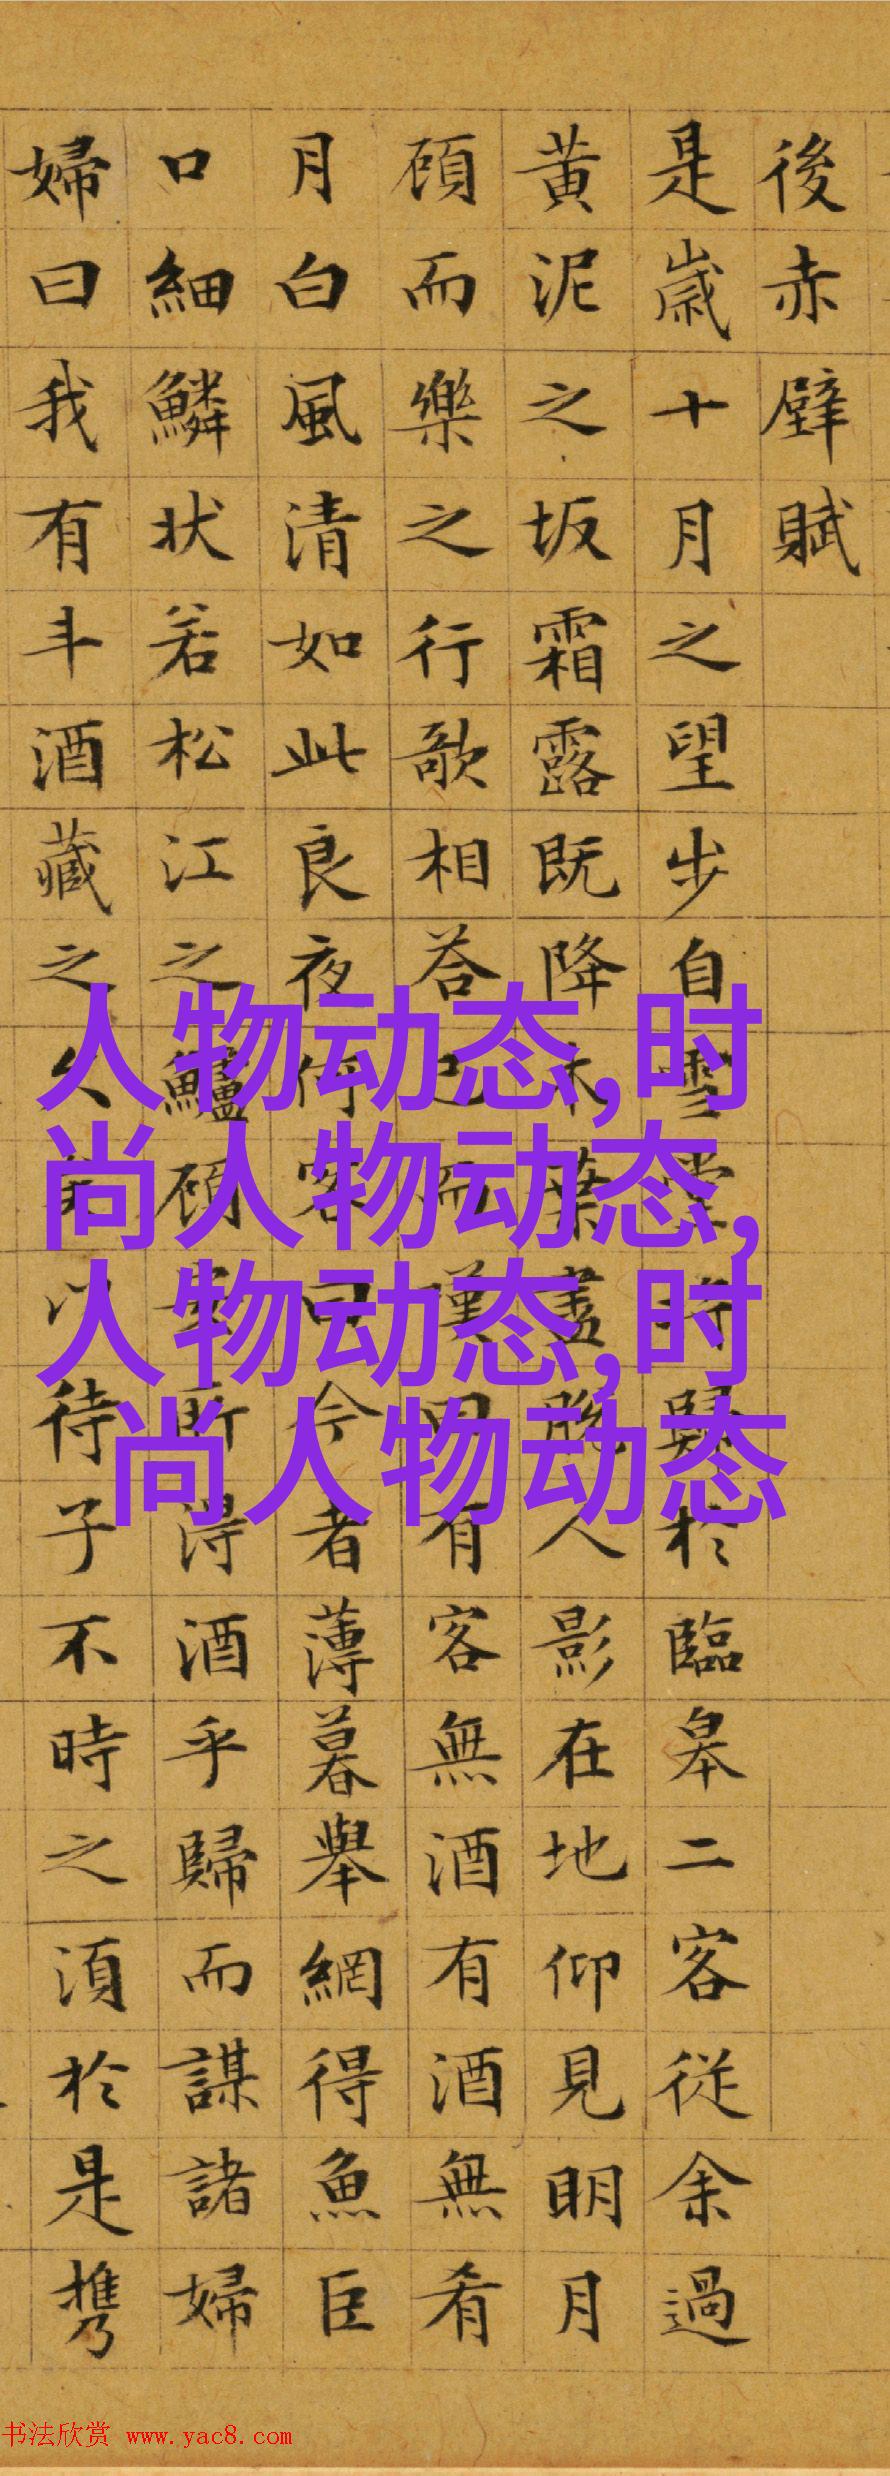 後赤壁賦
是歳十月之望步自雪堂将歸於臨皋二客從余過
黄泥之坂霜露既降木葉盡脫人影在地仰見明月
顧而樂之行歌相荅已而嘆曰有客無酒有酒無肴
月白風清如此良夜何客曰今者薄暮舉網得魚巨
口細鱗状若松江之鱸顧安所得酒乎歸而謀諸婦
婦曰我有斗酒藏之久矣以待子不時之須於是携
人物动态,时
尚人物动态,
人物动态,时
尚人物动态
书法欣赏 www.yac8.com